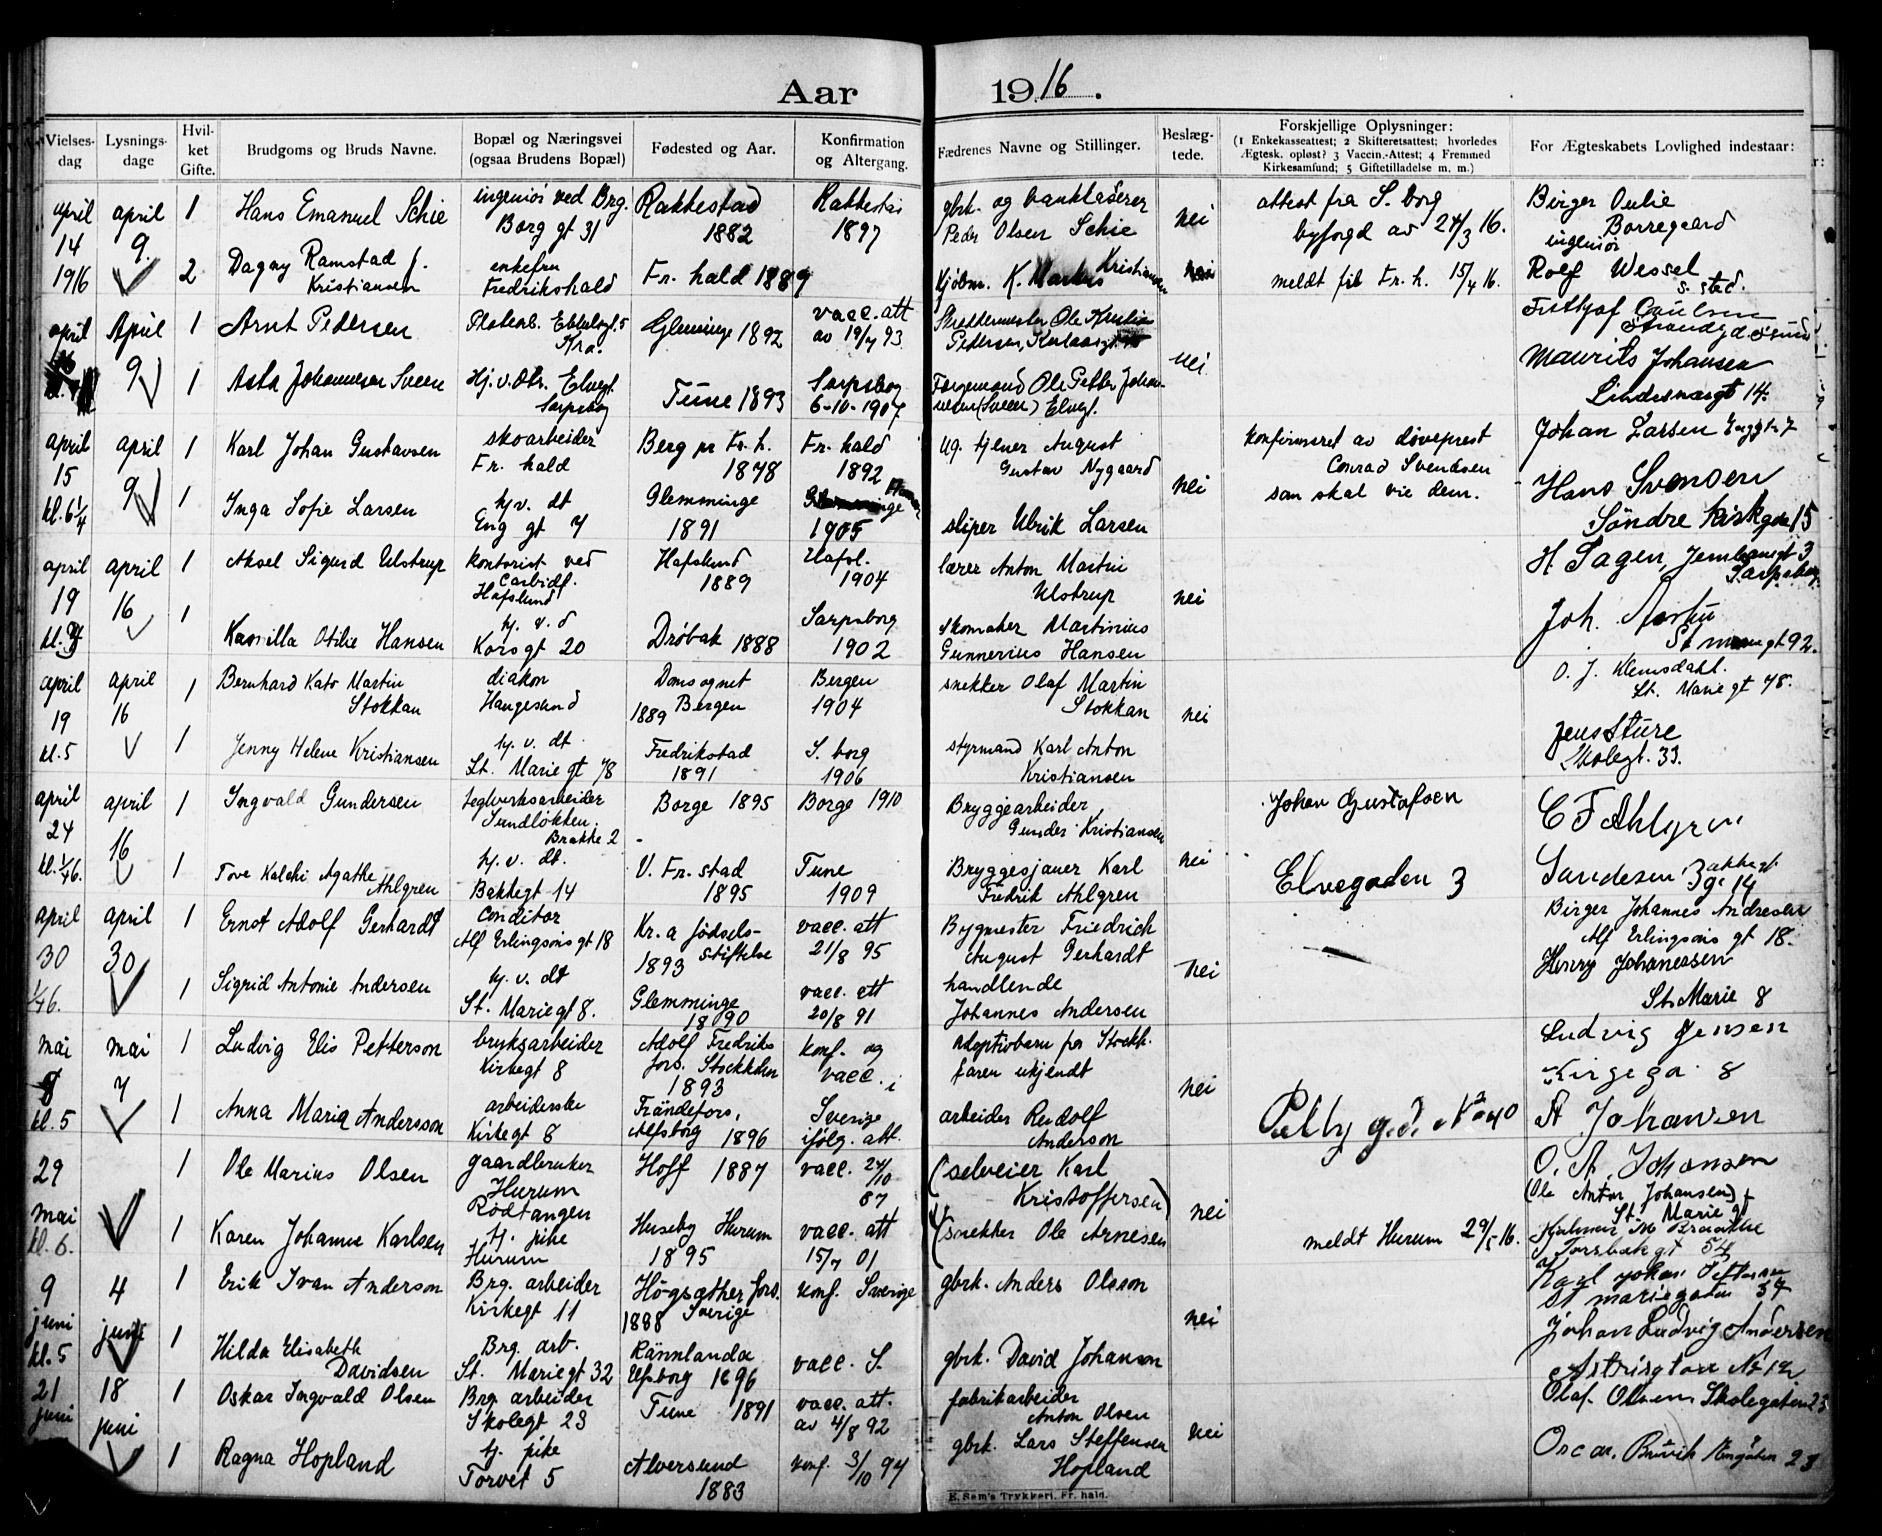 Aar 1916.
Vielses-dag | Lysnings-dage | Hvil-ket Gifte. | Brudgoms og Bruds Navne. | Bopæl og Næringsvei (ogsaa Brudens Bopæl) | Fødested og Aar. | Konfirmation og Altergang. | Fædrenes Navne og Stillinger. | Beslæg-tede. | Forskjellige Oplysninger: (1 Enkekasseattest; 2 Skifteretsattest; hvorledes Ægtesk. opløst? 3 Vaccin.-Attest; 4 Fremmed Kirkesamfund; 5 Giftetilladelse m. m.) | For Ægteskabets Lovlighed indestaar:
april 14 1916 | april 9. | 1 | Hans Emanuel Schie | ingeniör ved Brg. Borg gt 31 | Rakkestad 1882 | Rakkestad 1897 | gbrk. og bankkasserer Peder Olsen Schie | nei | attest fra S. borg byfogd av 24/3 16. | Birger Borregaard ingeniör
2 | Dagny Ramstad f. Kristiansen | enkefru Fredrikshald | Fr. hald 1889 | Kjöbm. K. Markus Kristiansen | nei | meldt til Fr. h. 15/4 16. | Rolf Wessel S. sted.
april | April 9 | 1 | Arnt Pedersen | Kra. | Glemminge 1892 | vacc. att av 19/7 93. | Skreddermester Ole Pedersen, | nei
1 | Asta Johannesen Sveen | Hj. v. dt. Elvegt. Sarpsborg | Tune 1893 | Sarpsborg 6-10-1907 | Ole Petter Johannesen (Sveen) Elvegt. | Maurits Johansen 14.
april 15 kl. 6 1/4 | april 9 | 1 | Karl Johan Gustavsen | skoarbeider Fr. hald | Berg pr Fr. h. 1878 | Fr. hald 1892 | ug. tjener August Gustav Nygaard | nei | konfirmeret av döveprest Conrad Svendsen som skal vie dem. | Johan Larsen Enggt 7
1 | Inga Sofie Larsen | hj. v. dt Eng gt 7 | Glemminge 1891 | 1905 | sliper Ulrik Larsen | Hans Svensen Söndre Kirkgt 15
april 19 | april 16 | 1 | Aksel Sigurd Ulstrup | kontorist ved Carbidf. Hafslund | Hafslund 1889 | Hafsl. 1904 | lærer Anton Martin Ulstrup | nei | H. Sagen, Jernbanegt 3 Sarpsborg.
1 | Kamilla Otilie Hansen | hj. v. d Korsgt 20 | Dröbak 1888 | Sarpsborg 1902 | skomaker Martinius Gunnerius Hansen | Joh. gt 92.
april 19 kl. 5 | april 16 | 1 | Bernhard Kato Martin Stokkan | diakon Haugesund | Domsognet Bergen 1889 | Bergen 1904 | snekker Olaf Martin Stokkan | nei | O. J. Klemsdahl. St. Marie gt 78.
1 | Jenny Helene Kristiansen | hj. v. dt. St. Marie gt 78 | Fredrikstad 1891 | S. borg 1906 | styrmand Karl Anton Kristiansen | Jens Sture Skolegt. 33.
april 24 | april 16 | 1 | Ingvald Gundersen | teglverksarbeider Sundlökken. Brakke 2 | Borge 1895 | Borge 1910 | Bryggearbeider Gunder Kristiansen | nei | Johan Gustafsen | C F Ahlgren
1 | Tove Kalchi Agathe Ahlgren | hj. v. dt. Bakkegt 14 | V. Fr. stad 1895 | Tune 1909 | Bryggesjauer Karl Fredrik Ahlgren | Elvegaden 3 | Bakkegt 14
april 30 | april 30 | 1 | Ernst Adolf Gerhardt | Conditor Alf Erlingsöns gt 18 | Kr. a födsels-stiftelse 1893 | vacc. att 21/8 95 | Bygmester Friedrich August Gerhardt | nei | Birger Johannes Andresen Alf Erlingsöns gt 18.
1 | Sigrid Antonie Andersen | hj. v. dt St. Mariegt 8. | Glemminge 1890 | vacc. att 20/8 91 | handlende Johannes Andersen | Henry Johannessen St. Marie 8
mai 8 kl. 5 | mai 7 | 1 | Ludvig Elis Petterson | bruksarbeider Kirkegt 8 | Adolf Fredriks fors. Stockholm 1893 | konf. og vacc. i | adoptivbarn fra Stockh. faren ukjendt | nei | Ludvig Jensen Kirgega 8
1 | Anna Maria Andersson | arbeiderske Kirkegt 8 | Frändefors, Alfsborg 1896 | Sverige ifölg. att. | arbeider Rudolf Anderson | Johansen
29 mai kl. 6. | 1 | Ole Marius Olsen | gaardbruker Hurum Rödtangen | Hoff 1887 | vacc. 24/10 87 | (selveier Karl Kristoffersen) | nei | O. A. Johansen (Ole Anton Johansen) St. Marie gt
1 | Karen Johanne Karlsen | tj. pike Hurum | Huseby Hurum 1895 | vacc. att 15/7 01 | (snekker Ole Arnesen | meldt Hurum 29/5 16. | Torsbakgt 54
9 juni kl. 5 | 4 juni | 1 | Erik Ivan Anderson | Brg. arbeider Kirkegt 11 | Högsæther fors. 1888 Sverige | konf. Sverige | gbrk. Anders Olsson | nei | Karl Johan Pettersen St mariegaten 37
1 | Hilda Elisabeth Davidsen | Brg. arb. St. Marie gt 32 | Rännlanda Elfsborg 1896 | vacc. S. | gbrk. David Johanson | Johan Ludvig Andersen
21 juni | 18 juni | 1 | Oskar Ingvald Olsen | Brg arbeider Skolegt 23 | Tune 1891 | vacc. att. av 4/8 92 | fabrikarbeider Anton Olsen | nei | Olaf Olsen Skolegaten 23
1 | Ragna Hopland | tj. pike Torvet 5 | Alversund 1883 | konf. 3/10 97 | gbrk. Lars Steffensen Hopland | Oscar
E. Sem's Trykkeri, Fr. hald.